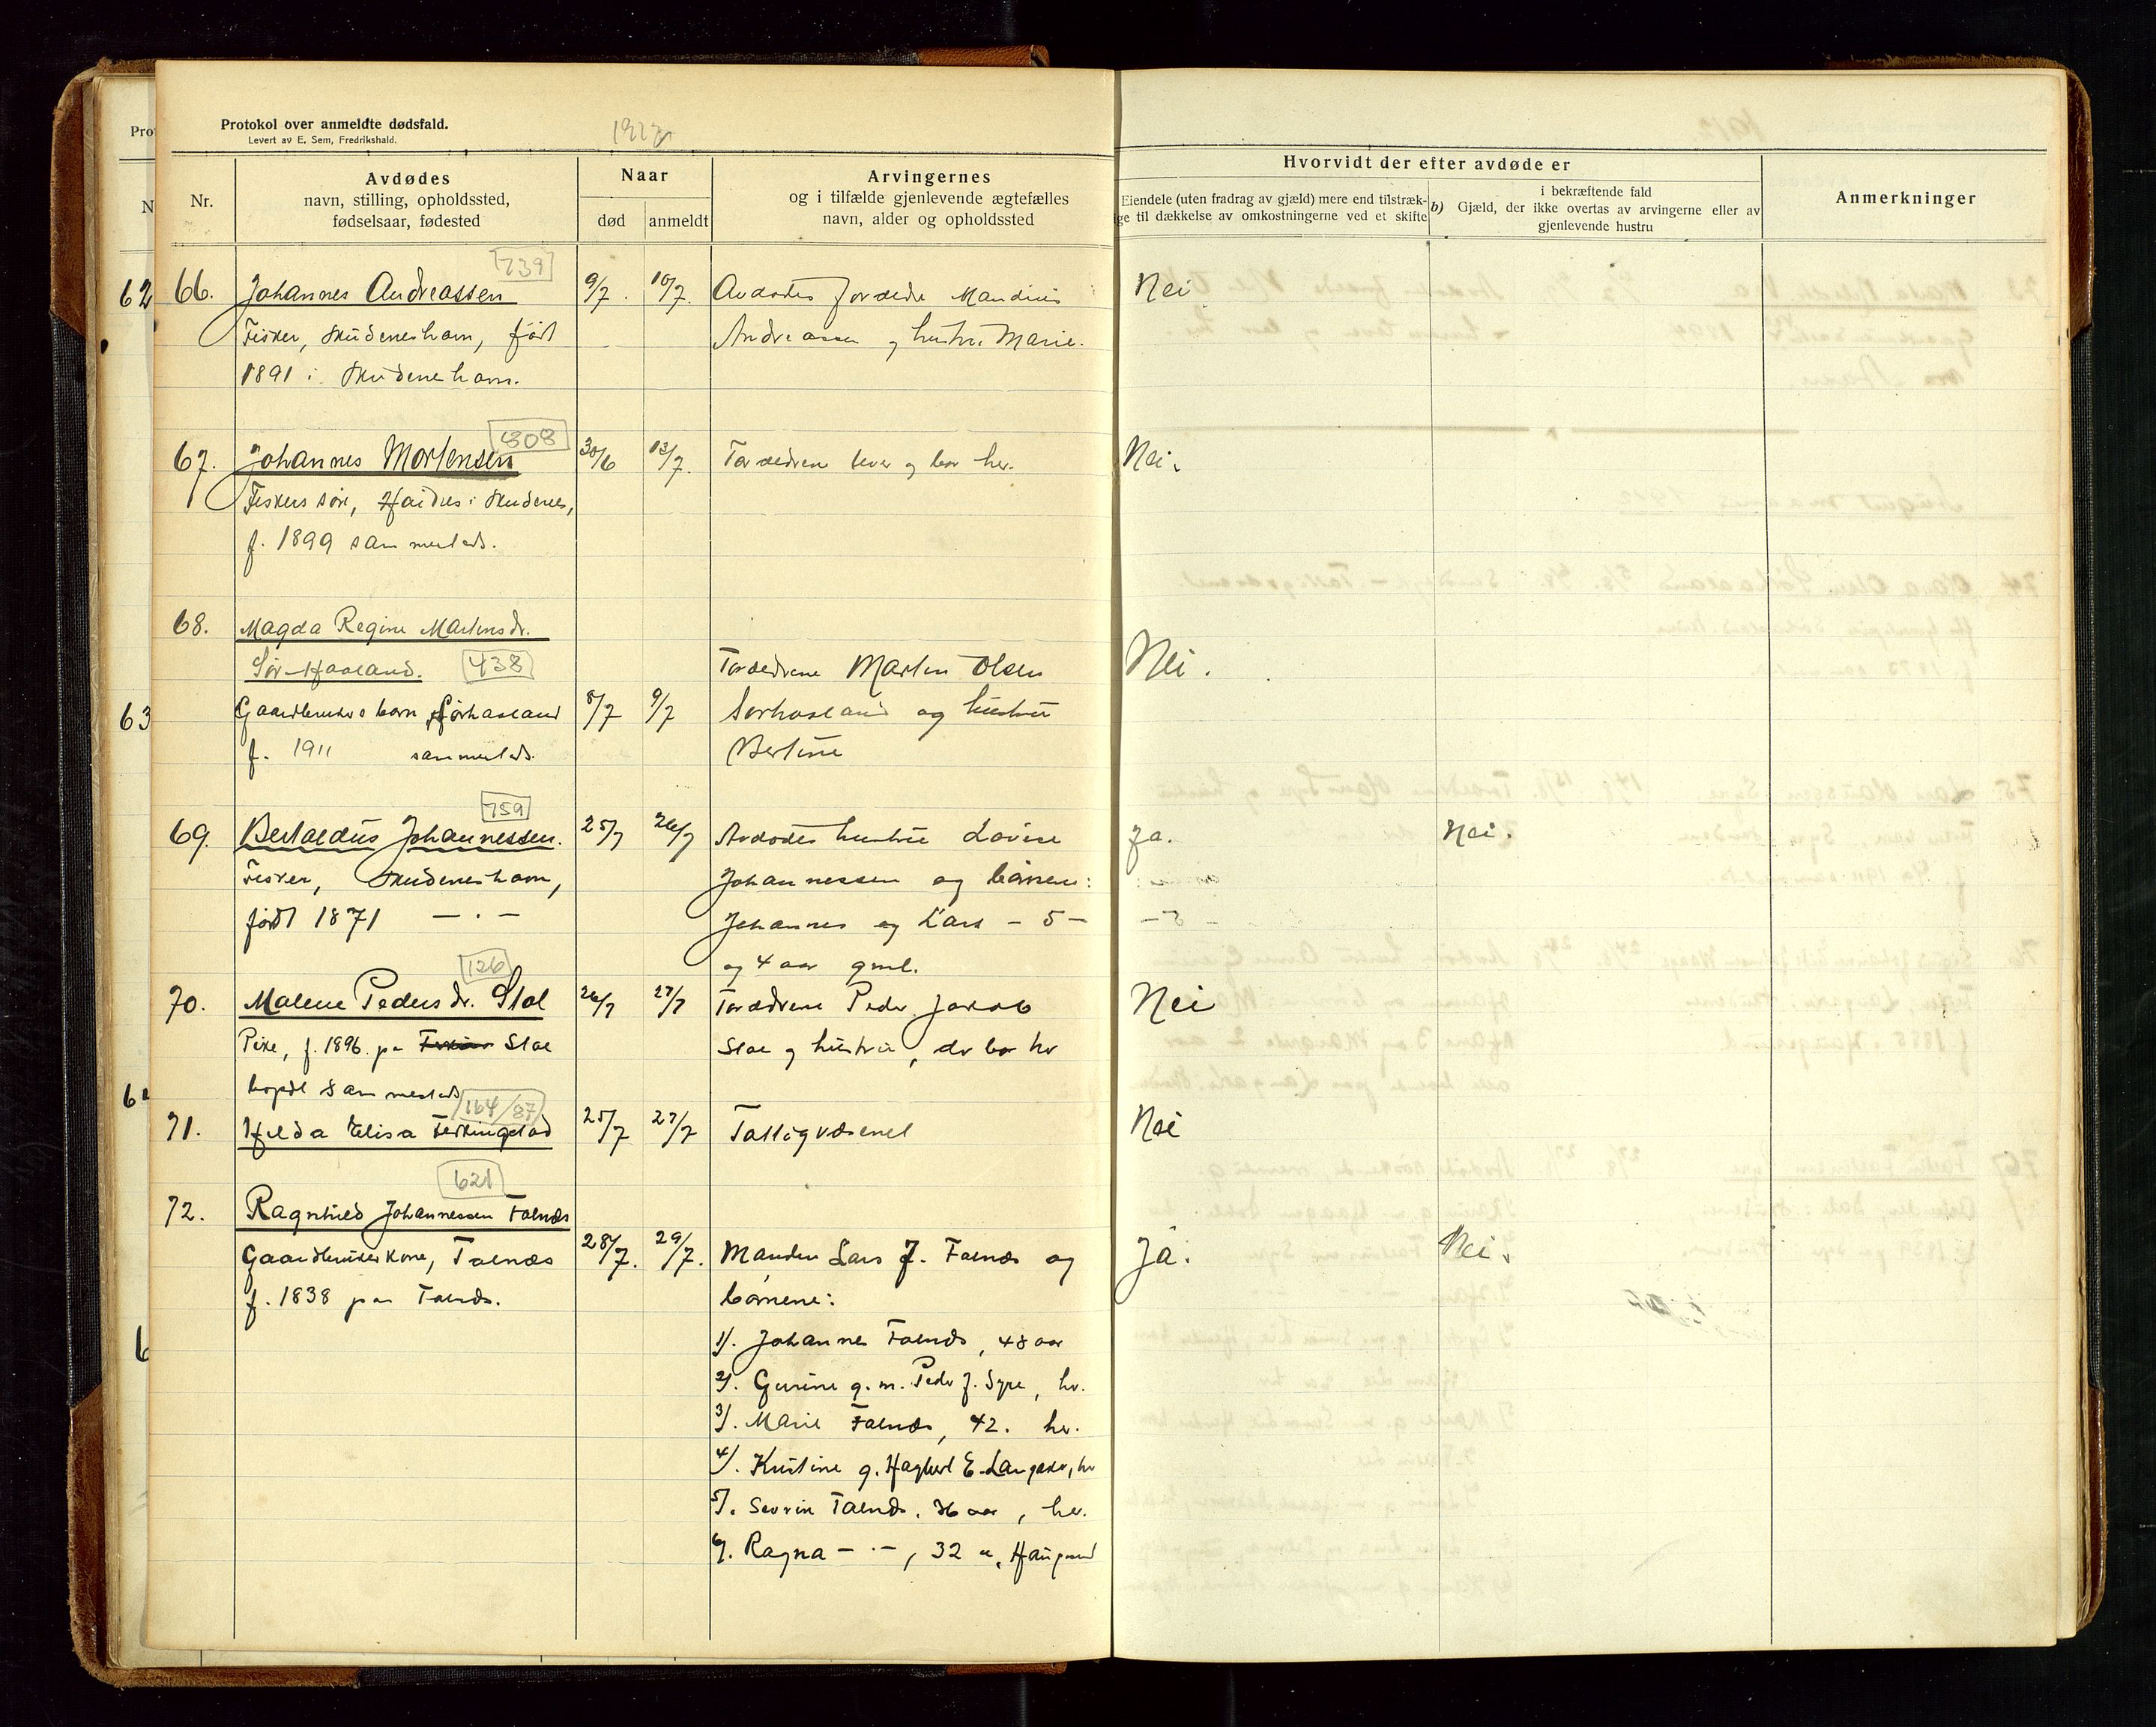 Protokol over anmeldte dødsfald.
Levert av E. Sem, Fredrikshald.
Nr.
Avdødes
navn, stilling, opholdssted,
fødselsaar, fødested
Naar
død
anmeldt
Arvingernes
og i tilfælde gjenlevende ægtefælles
navn, alder og opholdssted
Hvorvidt der efter avdøde er
Eiendele (uten fradrag av gjæld) mere end tilstræk-
ge til dækkelse av omkostningerne ved et skifte
i bekræftende fald
b) Gjæld, der ikke overtas av arvingerne eller av
gjenlevende hustru
Anmerkninger
739
66. Johannes Andreassen 9/7. 10/7. Avdødes forældre Mandius Nei
Fisker, Skudeneshavn, født Andreassen og hustru Marie.
1891 i Skudeneshavn.
808
67. Johannes Mortensen 30/6 13/7. Forældrene lever og bor her. Nei.
Fiskers søn, Haines i Skudenes,
f. 1899 sammesteds.
68. Magda Regine Martinsdr.
Sør-Haaland. 438 Forældrene Martin Olsen Nei.
Gaardbrukers barn, Sørhaaland 8/7 9/7 Sørhaaland og hustru
f. 1911 sammesteds. Bertine
759
69. Bertaldus Johannessen. 25/7 26/7 Avdødes hustru Lovise Ja. Nei.
Fisker, Skudeneshavn, Johannessen og børnene:
født 1871 — . — Johannes og Lars - 5 -
og 4 aar gml.
126
70. Malene Pedersdr. Stol 26/7 27/7 Forældrene Peder Jakob Nei
Pike, f. 1896 paa Stol Stol og hustru, der bor her
bopæl sammesteds
164/87
71. Hilda Elisa Ferkingstad 25/7 27/7 Fattigvæsenet Nei
621
72. Ragnhild Johannessen Falnæs
Gaardbrukerkone, Falnæs 28/7. 29/7. Manden Lars J. Falnæs og Ja. Nei.
f. 1838 paa Falnæs. børnene:
1). Johannes Falnæs, 48 aar
2). Gurine g. m. Peder J. Syre, her.
3). Marie Falnæs, 42. her.
4). Kristine g. Hagbert E. Langaker, her
5). Sevrin Falnæs. 36 aar, her.
6). Ragna — . —, 32 ", Haugesund
62
63